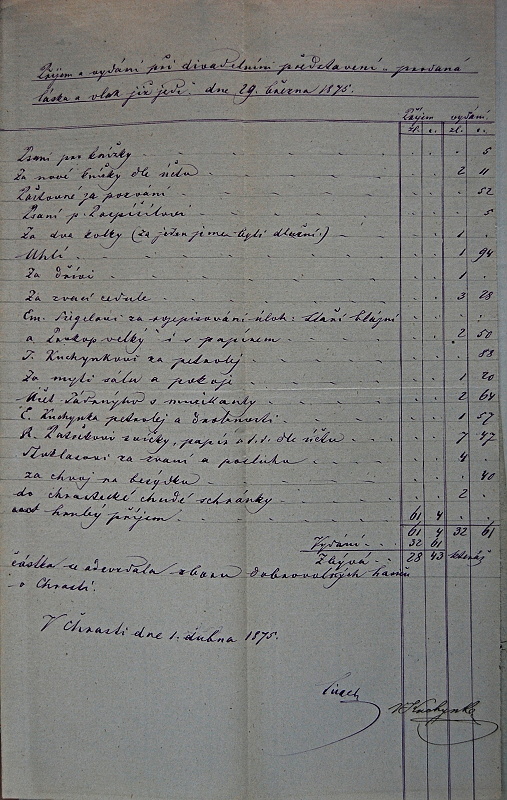 Příjem a vydání při divadelním představení „prodaná
láska a vlak již jede“ dne 29. března 1875.
Příjem vydání
zl. c. zl. c.
Psaní pro knížky 5
Za nové knížky dle účtu 2 11
Poštovné za pozvání 52
Psaní p. Pospíšilovi 5
Za dva kolky (za jeden jsme byli dlužni) 1
Uhlí 1 94
Za dříví 1
Za zvací cedule 3 28
Em. za rozepisování úloh: Staří blázni
a Prokop velký i s papírem 2 50
Kuchynkovi za petrolej 88
Za mytí sálu a pokoje 1 20
Účet s muzikanty 2 64
E. Kuchynka petrolej a drobnosti 1 57
svíčky, papír a t. d. dle účtu 7 47
za zvaní a posluhu 4
za chvoj na besídku 40
do chrastecké chudé schránky 2
hrubý příjem 61 4
61 4 32 61
Vydání 32 61
Zbývá 28 43 kteráž
částka se odevzdala sboru dobrovolných hasičů
v Chrasti.
V Chrasti dne 1. dubna 1875.
V Kuchynka